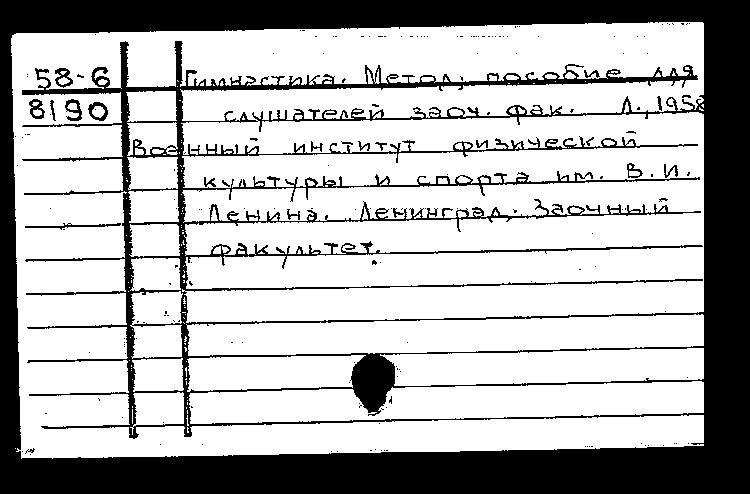 58-6 Гимнастика. Метод. пособие для
8190 слушателей заоч. фак. Л., 1958
Военный институт физической
культуры и спорта им. В.И.
Ленина. Ленинград. Заочный
факультет.